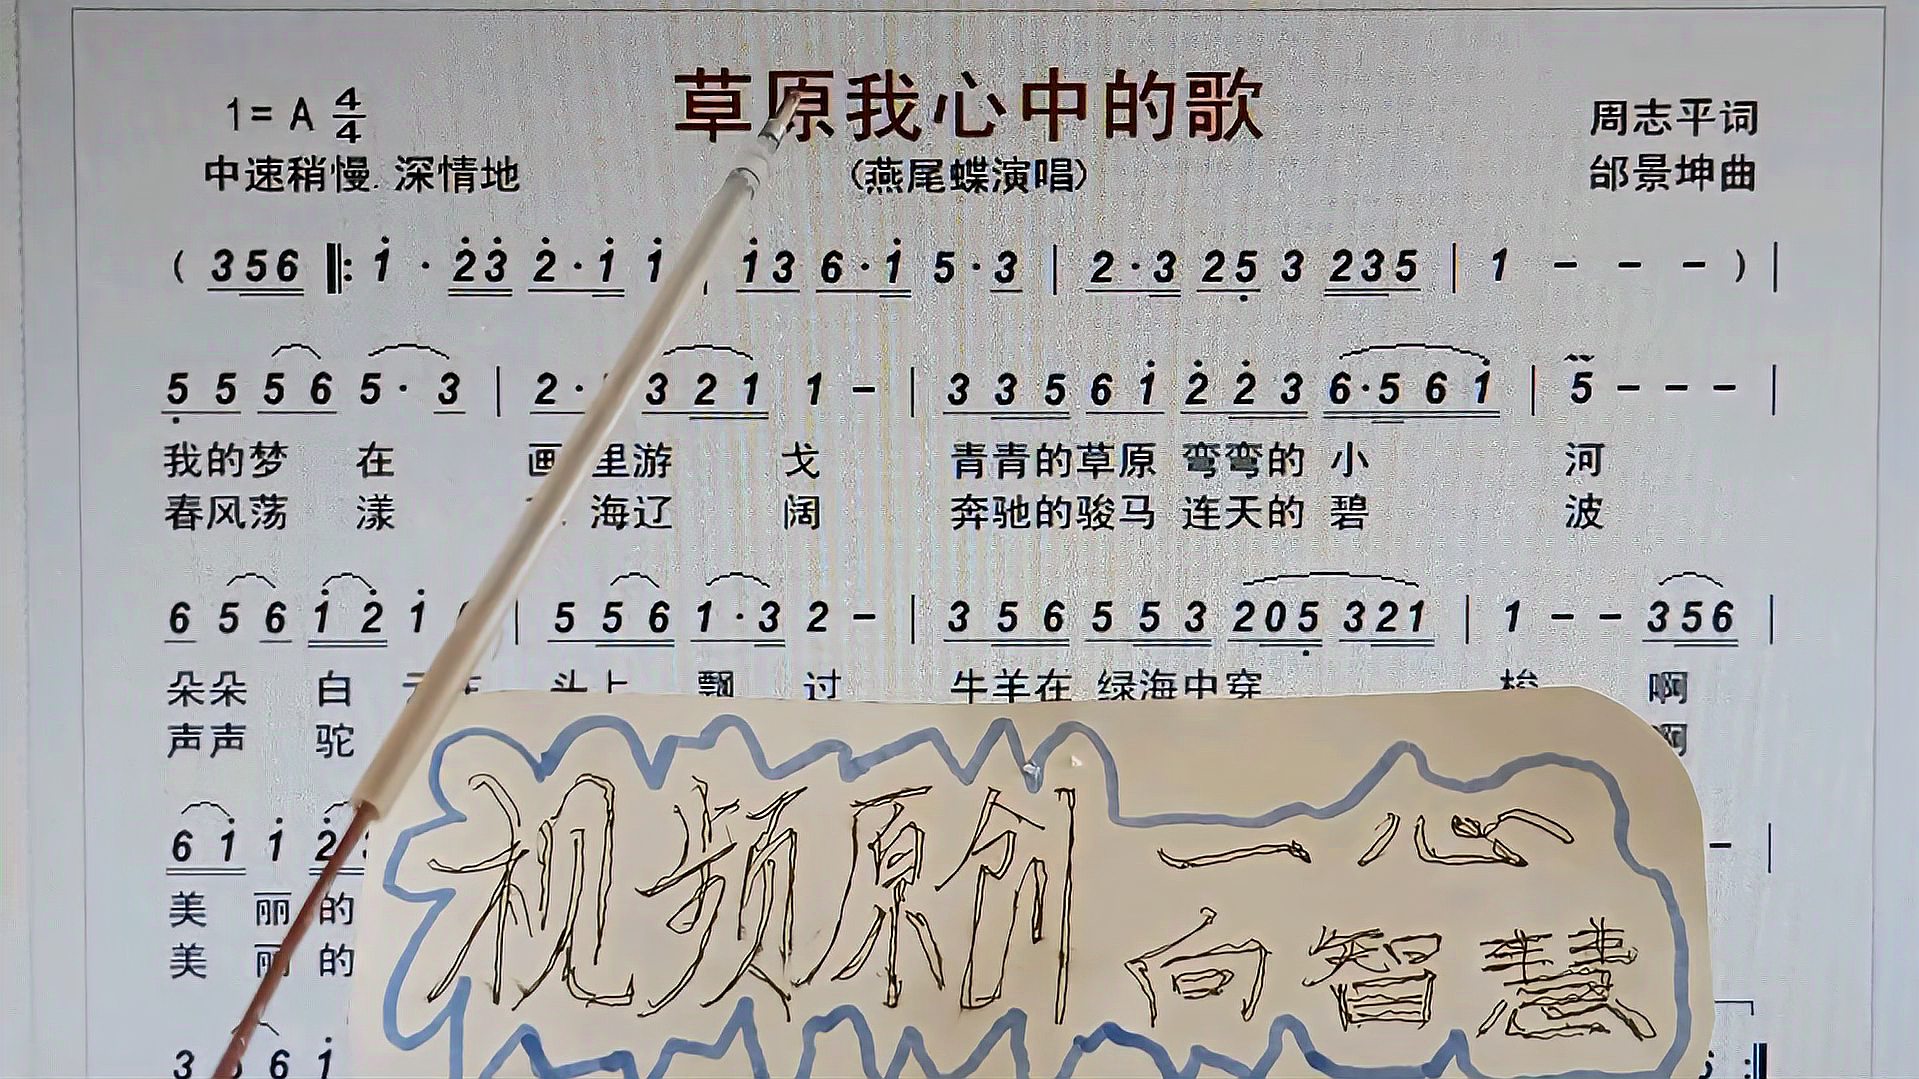 草原我心中的歌
1= A 4/4
周志平词
中速稍慢 深情地
(燕尾蝶演唱)
邰景坤曲
( 356 ‖: 1 · 23 2 · 1 1 13 6 · 1 5 · 3 | 2 · 3 25 3 235 | 1 – – – ) |
5 5 5 6 5 · 3 | 2 · 3 2 1 1 – | 3 3 5 6 1 2 2 3 6 · 5 6 1 | 5 – – – |
我的梦 在 画 里游 戈 青青的草原 弯弯的 小 河
春风荡 漾 海辽 阔 奔驰的骏马 连天的 碧 波
6 5 6 1 2 1 | 5 5 6 1 · 3 2 – | 3 5 6 5 5 3 205 321 | 1 – – 356 |
朵朵 白 头上 飘 过 牛羊在 绿海中穿 梭 啊
声声 驼 啊
6 1 1 2 – |
美 丽 的
美 丽 的
3 6 1
视频原创 一心
向智慧